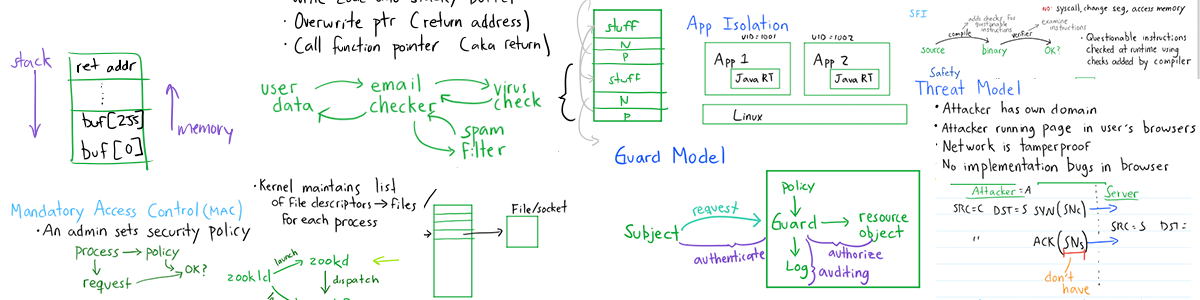 · Overwrite ptr (return address)
· Call function pointer (aka return)
stack
ret addr
buf[255]
buf[0]
memory
user data
email checker
virus check
spam filter
stuff
N
P
stuff
N
P
App Isolation
UID=1001
App 1
Java RT
UID=1002
App 2
Java RT
Linux
SFI
NO: syscall, change seg, access memory
adds checks for questionable instructions
examine instructions
compile
verifier
source
binary
OK?
· Questionable instructions
checked at runtime using
checks added by compiler
Safety
Threat Model
• Attacker has own domain
• Attacker running page in user's browsers
• Network is tamperproof
No implementation bugs in browser
Attacker = A
Server
SRC=C DST=S SYN(SNc)
SRC=S DST=
" ACK(SNs)
don't
have
Mandatory Access Control (MAC)
• An admin sets security policy
process
policy
request
OK?
• Kernel maintains list
of file descriptors → files
for each process
File/socket
zookld
launch
zookd
dispatch
Guard Model
Subject
request
authenticate
policy
Guard
resource
object
Log
authorize
auditing